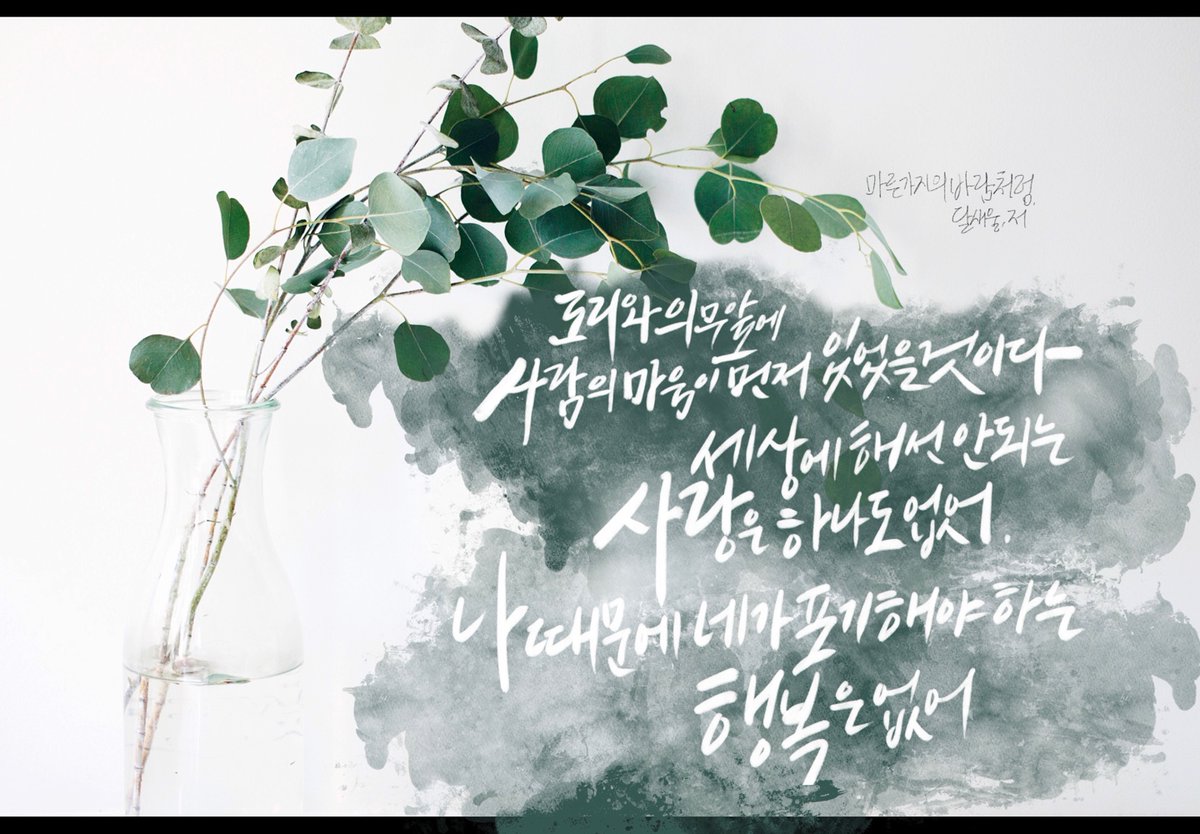 마른가지의 바람처럼,
달새울, 저
도리와 의무 앞에
사람의 마음이 먼저 있었을 것이다
세상에 해선 안되는
사랑은 하나도 없어.
나 때문에 네가 포기해야 하는
행복은 없어